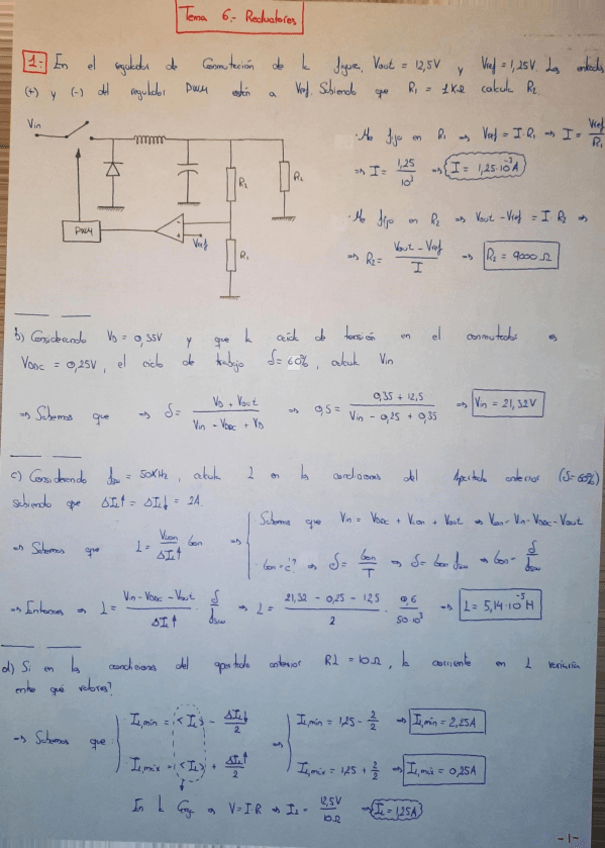 Tema 6.- Reductores
1.- En el regulador de Conmutación de la figura, Vout = 12,5V y Vref = 1,25V. Las entradas
(+) y (-) del regulador PWM están a Vref. Sabiendo que R1 = 1KΩ calcula R2.
Vin
R2
RL
PWM
Vref
R1
· Me fijo en R1 ⇒ Vref = I·R1 ⇒ I = Vref/R1
⇒ I = 1,25/10³ ⇒ I = 1,25·10⁻³A
· Me fijo en R2 ⇒ Vout - Vref = I R2 ⇒
⇒ R2 = (Vout - Vref)/I ⇒ R2 = 9000 Ω
b) Considerando VD = 0,35V y que la caída de tensión en el conmutador es
VDSC = 0,25V, el ciclo de trabajo δ = 60%, calcula Vin
⇒ Sabemos que ⇒ δ = (VD + Vout)/(Vin - VDSC + VD) ⇒ 0,5 = (0,35 + 12,5)/(Vin - 0,25 + 0,35) ⇒ Vin = 21,32V
c) Considerando fsw = 50KHz, calcula L en las condiciones del Apartado anterior (δ=60%)
sabiendo que ΔIL↑ = ΔIL↓ = 2A.
⇒ Sabemos que L = VLon/ΔIL↑ · ton ⇒
Sabemos que Vin = VDSC + VLon + Vout ⇒ VLon = Vin - VDSC - Vout
· ton = ¿? ⇒ δ = ton/T ⇒ δ = ton fsw ⇒ ton = δ/fsw
⇒ Entonces ⇒ L = (Vin - VDSC - Vout)/ΔIL↑ · δ/fsw ⇒ L = (21,32 - 0,25 - 12,5)/2 · 0,6/50·10³ ⇒ L = 5,14·10⁻⁵ H
d) Si en las condiciones del apartado anterior RL = 10Ω, la corriente en L variaría
entre qué valores?
⇒ Sabemos que
IL,min = <IL> - ΔIL↓/2 ⇒ IL,min = 1,25 - 2/2 ⇒ IL,min = 2,25A
IL,máx = <IL> + ΔIL↑/2 ⇒ IL,máx = 1,25 + 2/2 ⇒ IL,máx = 0,25A
En la Carga ⇒ V = I R ⇒ IL = 12,5V/10Ω ⇒ IL = 1,25A
-1-